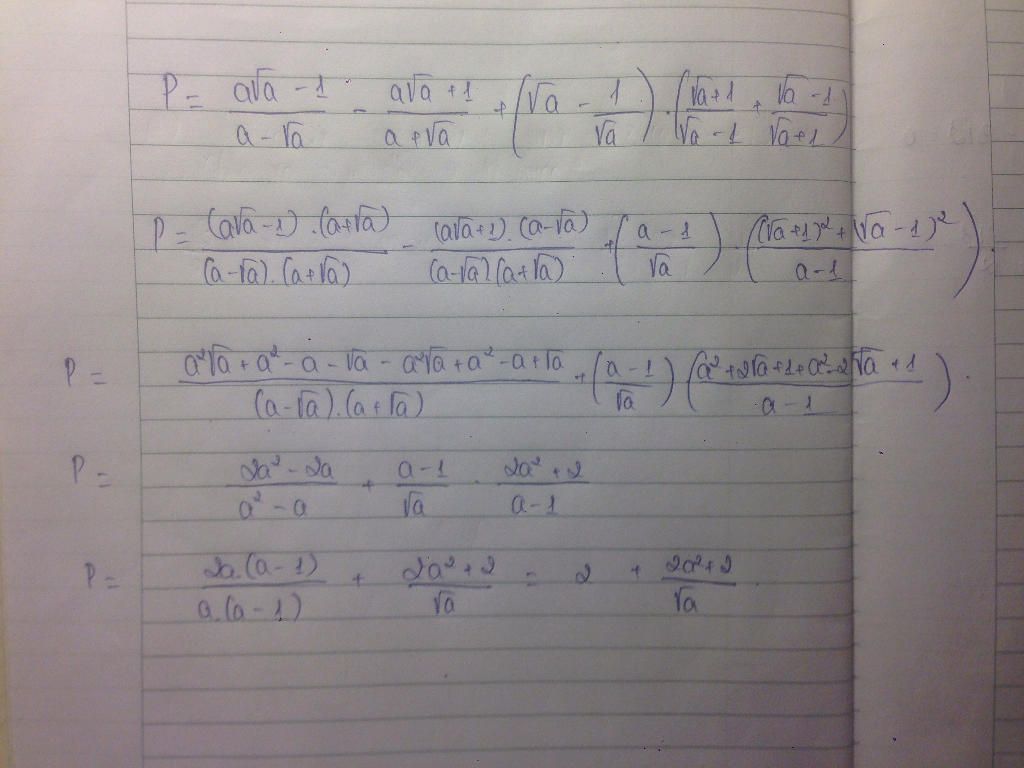 P = (a√a - 1)/(a - √a) - (a√a + 1)/(a + √a) + (√a - 1/√a) . ((√a + 1)/(√a - 1) + (√a - 1)/(√a + 1))
P = ((a√a - 1) . (a + √a))/((a - √a) . (a + √a)) - ((a√a + 1) . (a - √a))/((a - √a)(a + √a)) + ((a - 1)/√a) . (((√a + 1)² + (√a - 1)²)/(a - 1)) .
P = (a²√a + a² - a - √a - a²√a + a² - a + √a)/((a - √a) . (a + √a)) + ((a - 1)/√a) ((a² + 2√a + 1 + a² - 2√a + 1)/(a - 1)) .
P = (2a² - 2a)/(a² - a) + (a - 1)/√a . (2a² + 2)/(a - 1)
P = (2a.(a - 1))/(a.(a - 1)) + (2a² + 2)/√a = 2 + (2a² + 2)/√a .